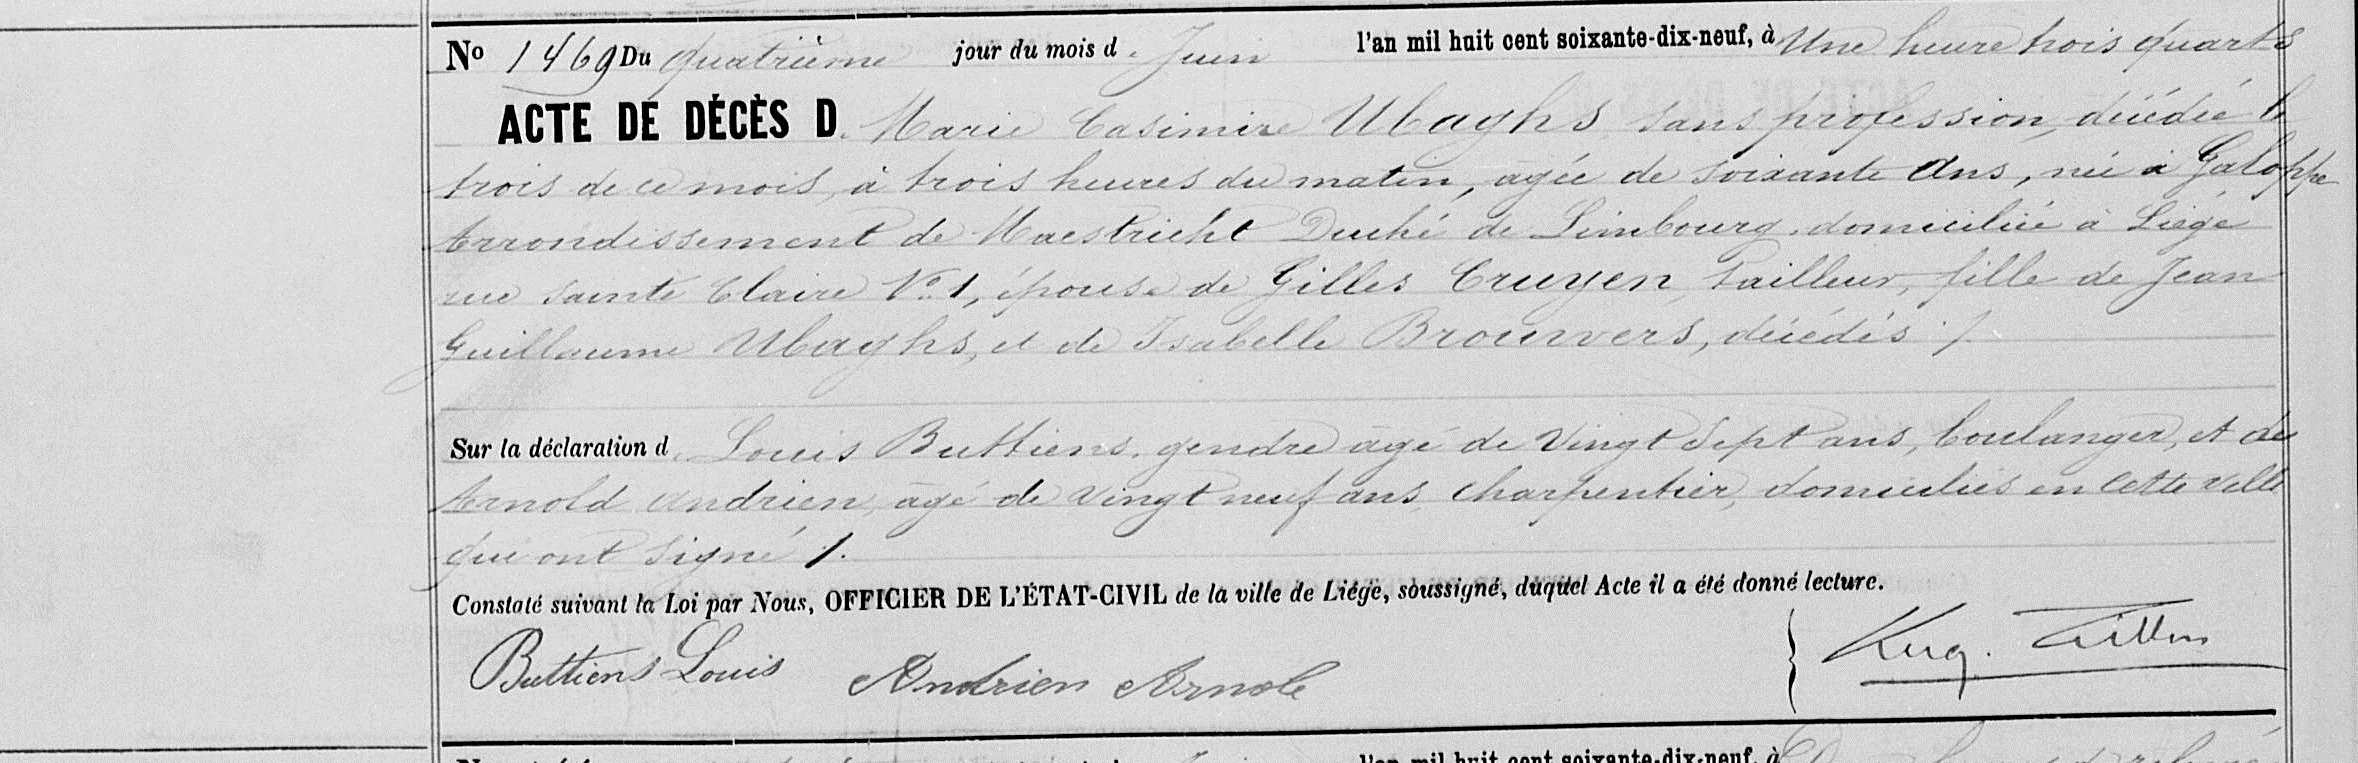 No 1469 Du quatrième jour du mois d. Juin l'an mil huit cent soixante-dix-neuf, à Une heure trois quarts
ACTE DE DÉCÈS D. Marie Casimire Ubaghs sans profession, décédée le
trois de ce mois, à trois heures du matin, agée de soixante Ans, née à Galoppe
Arrondissement de Maestricht Duché de Limbourg, domiciliée à Liége
rue Sainte Claire No 1, épouse de Gilles Cruyen, tailleur, fille de Jean
Guillaume Ubaghs, et de Isabelle Brouwers, décédés ./.
Sur la déclaration d. Louis Buttiens, gendre agé de Vingt Sept ans, boulanger, et de
Arnold Andrien, agé de vingt neuf ans, charpentier, domiciliés en cette ville
qui ont signé ./.
Constaté suivant la Loi par Nous, OFFICIER DE L'ÉTAT-CIVIL de la ville de Liége, soussigné, duquel Acte il a été donné lecture.
Buttiens Louis Andrien Arnole
l'an mil huit cent soixante-dix-neuf, à